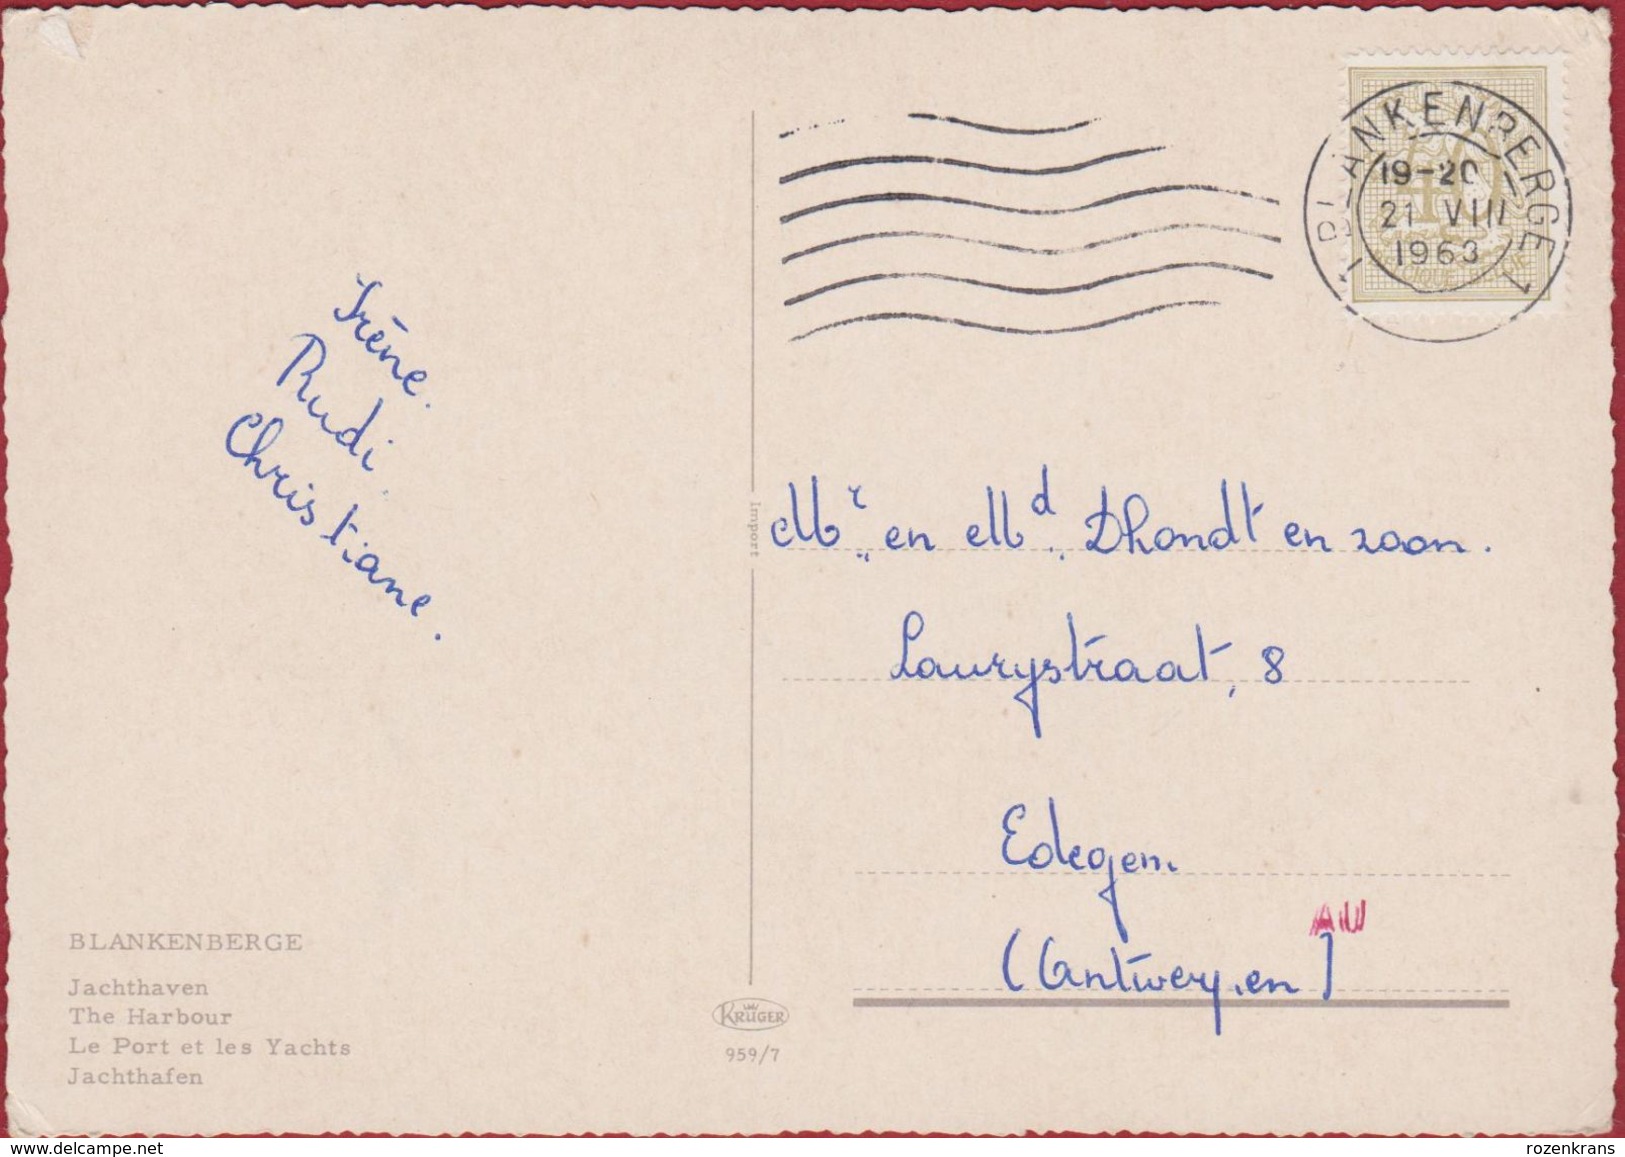 BLANKENBERGE
19-20
21 VIII
1963
1
1
40
Irène.
Rudi.
Christiane.
Import
Mr. en Md. Dhondt en zoon.
Laurijstraat, 8
Edegem.
(Antwerpen)
AW
BLANKENBERGE
Jachthaven
The Harbour
Le Port et les Yachts
Jachthafen
KRÜGER
959/7
delcampe.net
rozenkrans